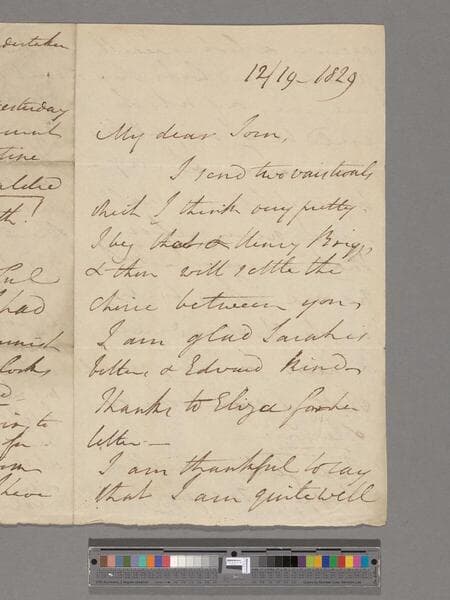 ndertaker
yesterday
tine
th!
had
looks
to
have
12/19-1829
My dear Tom,
I send two waistcoats
which I think very pretty
I beg Henry Briggs
& thou will settle the
choice between you,
I am glad Sarah is
better, & Edward kind
Thanks to Eliza for her
letter—
I am thankful to say
that I am quite well